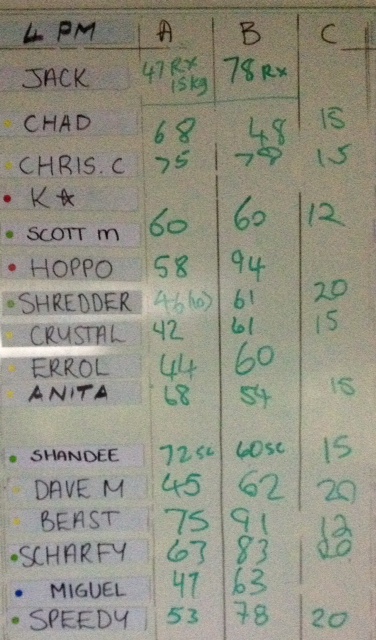 4 PM A B C
JACK 47 RX 15kg 78 RX
CHAD 68 48 15
CHRIS. C 75 15
K☆
SCOTT m 60 60 12
HOPPO 58 94
SHREDDER 46 (10) 61 20
CRYSTAL 42 61 15
ERROL 44 60
ANITA 68 54 15
SHANDEE 72 sc 60 sc 15
DAVE M 45 62 20
BEAST 75 91 12
SCHARFY 63 83 20
MIGUEL 47 63
SPEEDY 53 78 20